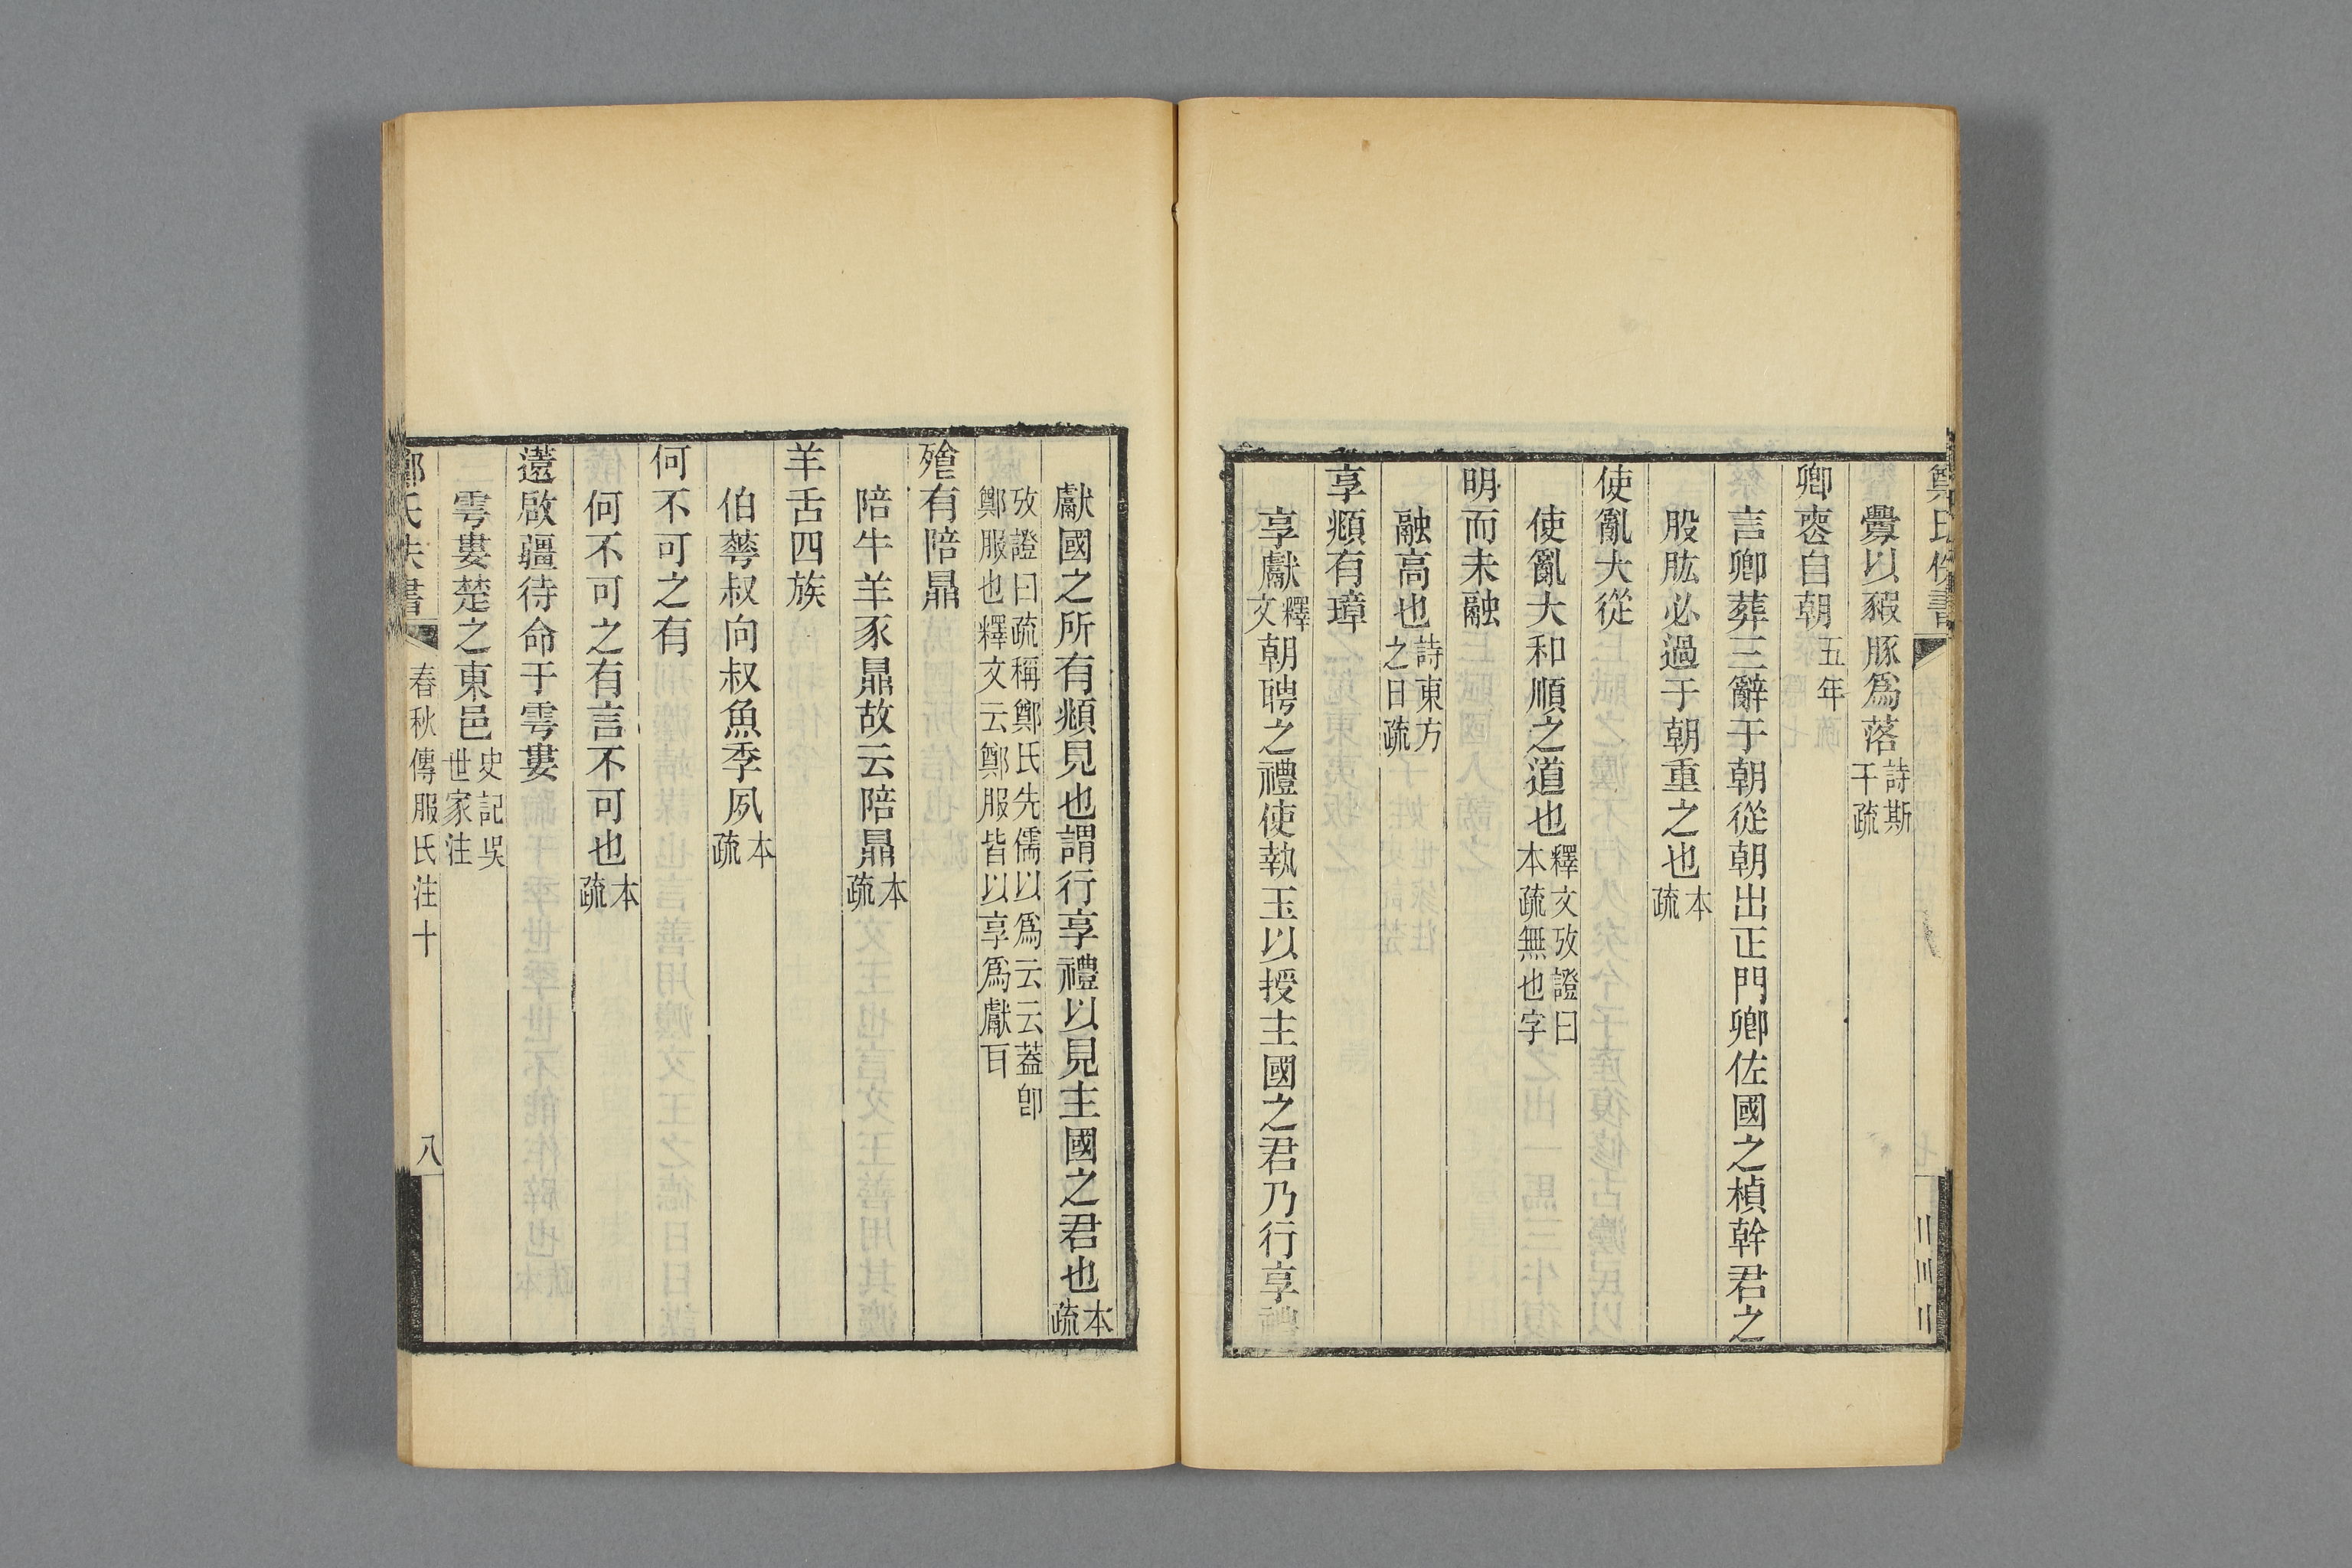 釁以豭豚爲落詩斯干疏
卿喪自朝五年
言卿葬三辭于朝從朝出正門卿佐國之楨幹君之
股肱必過于朝重之也本疏
使亂大從
使亂大和順之道也釋文攷證曰本疏無也字
明而未融
融高也詩東方之日疏
享頫有璋
享獻釋文朝聘之禮使執玉以授主國之君乃行享禮
獻國之所有頫見也謂行享禮以見主國之君也本疏
攷證曰疏稱鄭氏先儒以爲云云蓋卽
鄭服也釋文云鄭服皆以享爲獻耳
飧有陪鼎
陪牛羊豕鼎故云陪鼎本疏
羊舌四族
伯華叔向叔魚季夙本疏
何不可之有
何不可之有言不可也本疏
薳啟疆待命于雩婁
雩婁楚之東邑史記吳世家注
鄭氏佚書
春秋傳服氏注十
八